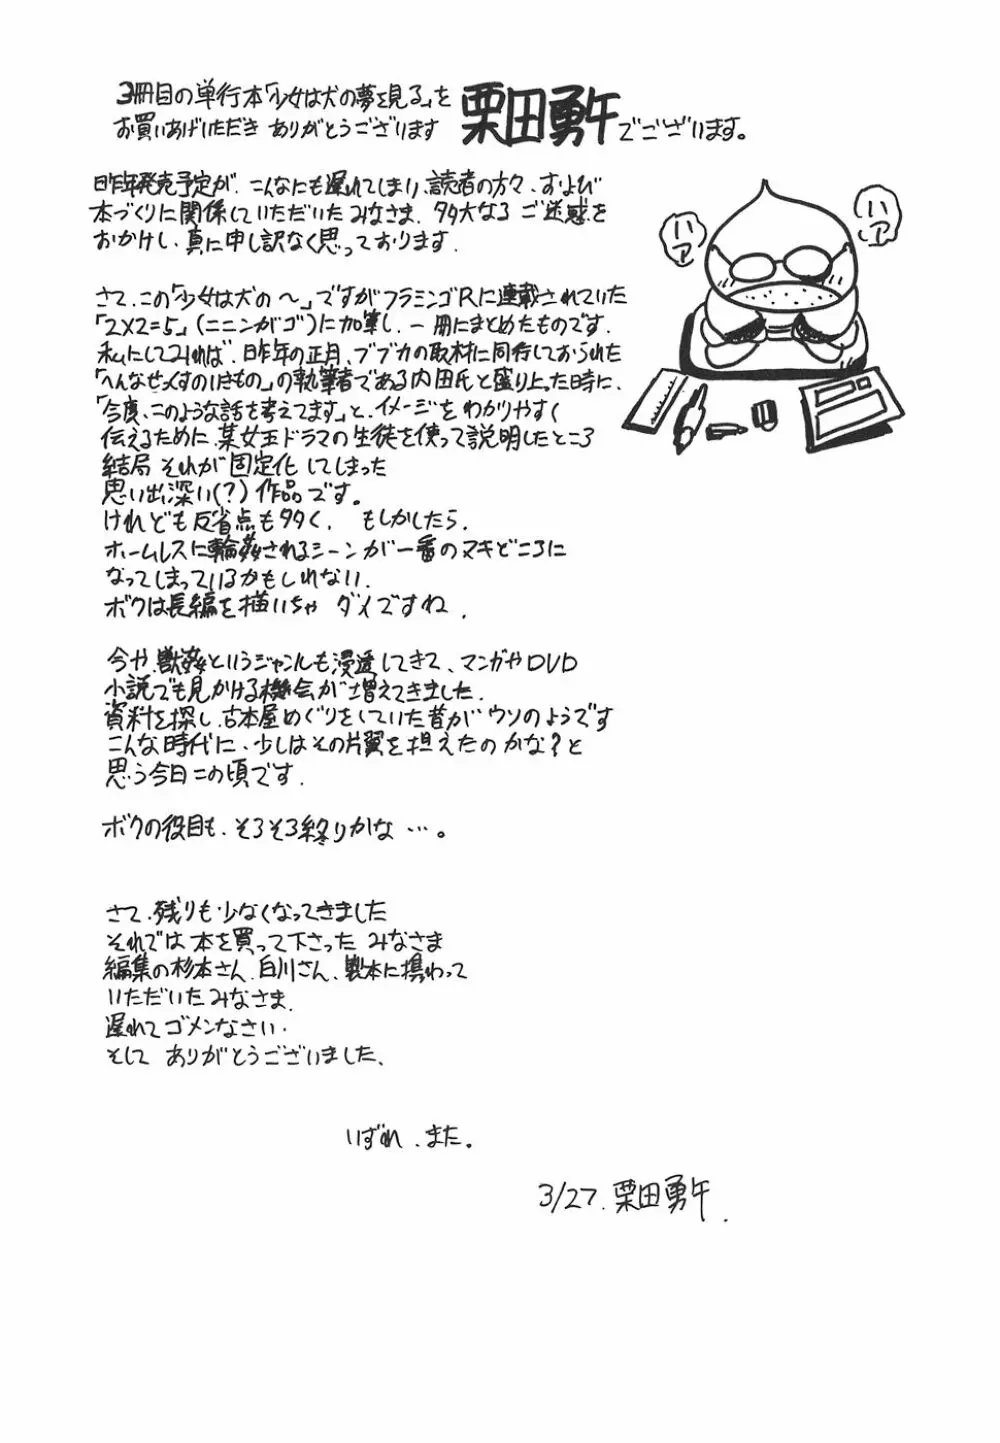 3冊目の単行本「少女は犬の夢を見る」を
お買いあげいただき ありがとうございます
栗田勇午でございます。
ハア
ハア
昨年発売予定が、こんなにも遅れてしまい、読者の方々、および
本づくりに関係していただいたみなさま、多大なるご迷惑を
おかけし、真に申し訳なく思っております.
さて、この「少女は犬の〜」ですがフラミンゴRに連載されていた
「2×2=5」(ニニンがゴ)に加筆し、一冊にまとめたものです.
私にしてみれば、昨年の正月、ブブカの取材に同行しておられた
「へんなせっくすのいきもの」の執筆者である内田氏と盛り上った時に、
「今度、このような話も考えてます」と、イメージをわかりやすく
伝えるために、某女王ドラマの生徒を使って説明したところ
結局 それが固定化してしまった
思い出深い(?)作品です。
けれども反省点も多く、もしかしたら、
ホームレスに輪姦されるシーンが一番のマキどころに
なってしまっているかもしれない.
ボクは長編を描いちゃ ダメですね.
今や、獣姦というジャンルも浸透してきて、マンガやDVD
小説でも見かける機会が増えてきました.
資料を探し、古本屋めぐりをしていた昔がウソのようです
こんな時代に、少しはその片翼を担えたのかな?と
思う今日この頃です.
ボクの役目も、そろそろ終りかな…。
さて、残りも少なくなってきました
それでは本を買って下さったみなさま
編集の杉本さん、白川さん、製本に携わって
いただいたみなさま.
遅れてゴメンなさい.
そして ありがとうございました、
いずれ、また。
3/27. 栗田勇午.